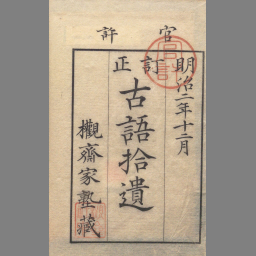 官許
明治二年十二月
訂正
古語拾遺
櫬齋家塾藏